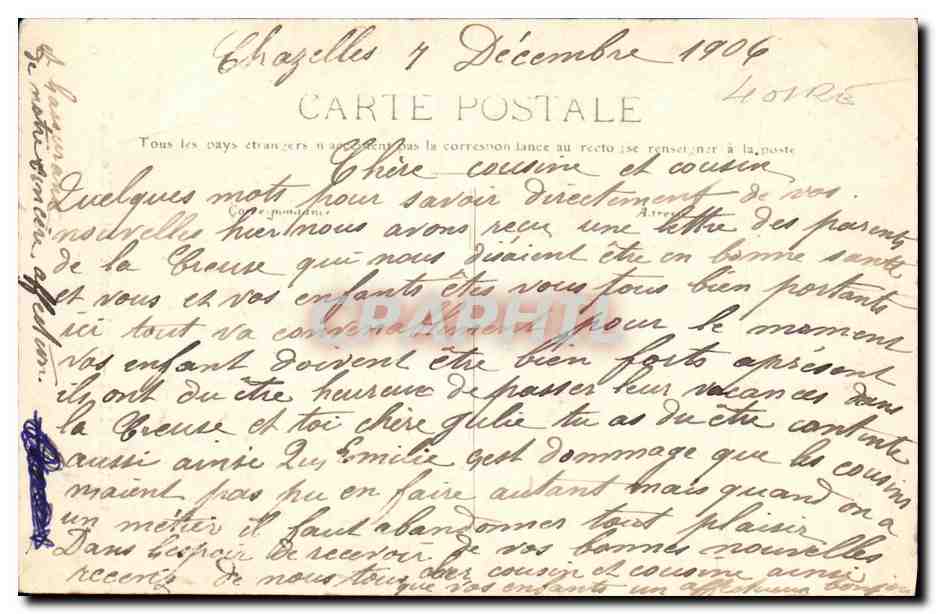 Chazelles 7 Décembre 1906
LOIRE
CARTE POSTALE
Tous les pays étrangers n'acceptent pas la correspondance au recto, se renseigner à la poste
Chère cousine et cousin
Quelques mots pour savoir directement de vos
Correspondance
nouvelles hier nous avons reçu une lettre des parents
de la Creuse qui nous disaient être en bonne santé
et vous et vos enfants êtes vous tous bien portants
CPAPHIL
ici tout va convenablement pour le moment
vos enfant doivent être bien forts aprésent
ils ont du être heureux de passer leur vacances dans
la Creuse et toi chère Julie tu as du être contente
aussi ainsi que Emilie c'est dommage que les cousins
n'aient pas pu en faire autant mais quand on a
un métier il faut abandonner tout plaisir
Dans l'espoir de recevoir de vos bonnes nouvelles
recevez de nous tous cher cousin et cousine ainsi
que vos enfants un affectueux bonjour
de notre sincère affection.